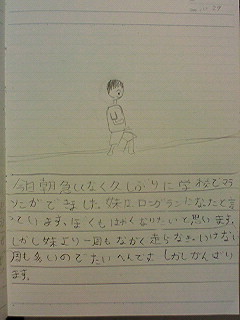 今日朝急しくなく久しぶりに学校でマラ
ソンができました。妹はロングランになったと言
っています。ぼくもはやくなりたいと思います。
しかし妹より一周もながく走らなきゃいけない
周も多いのでたいへんです しかしがんばり
ます。